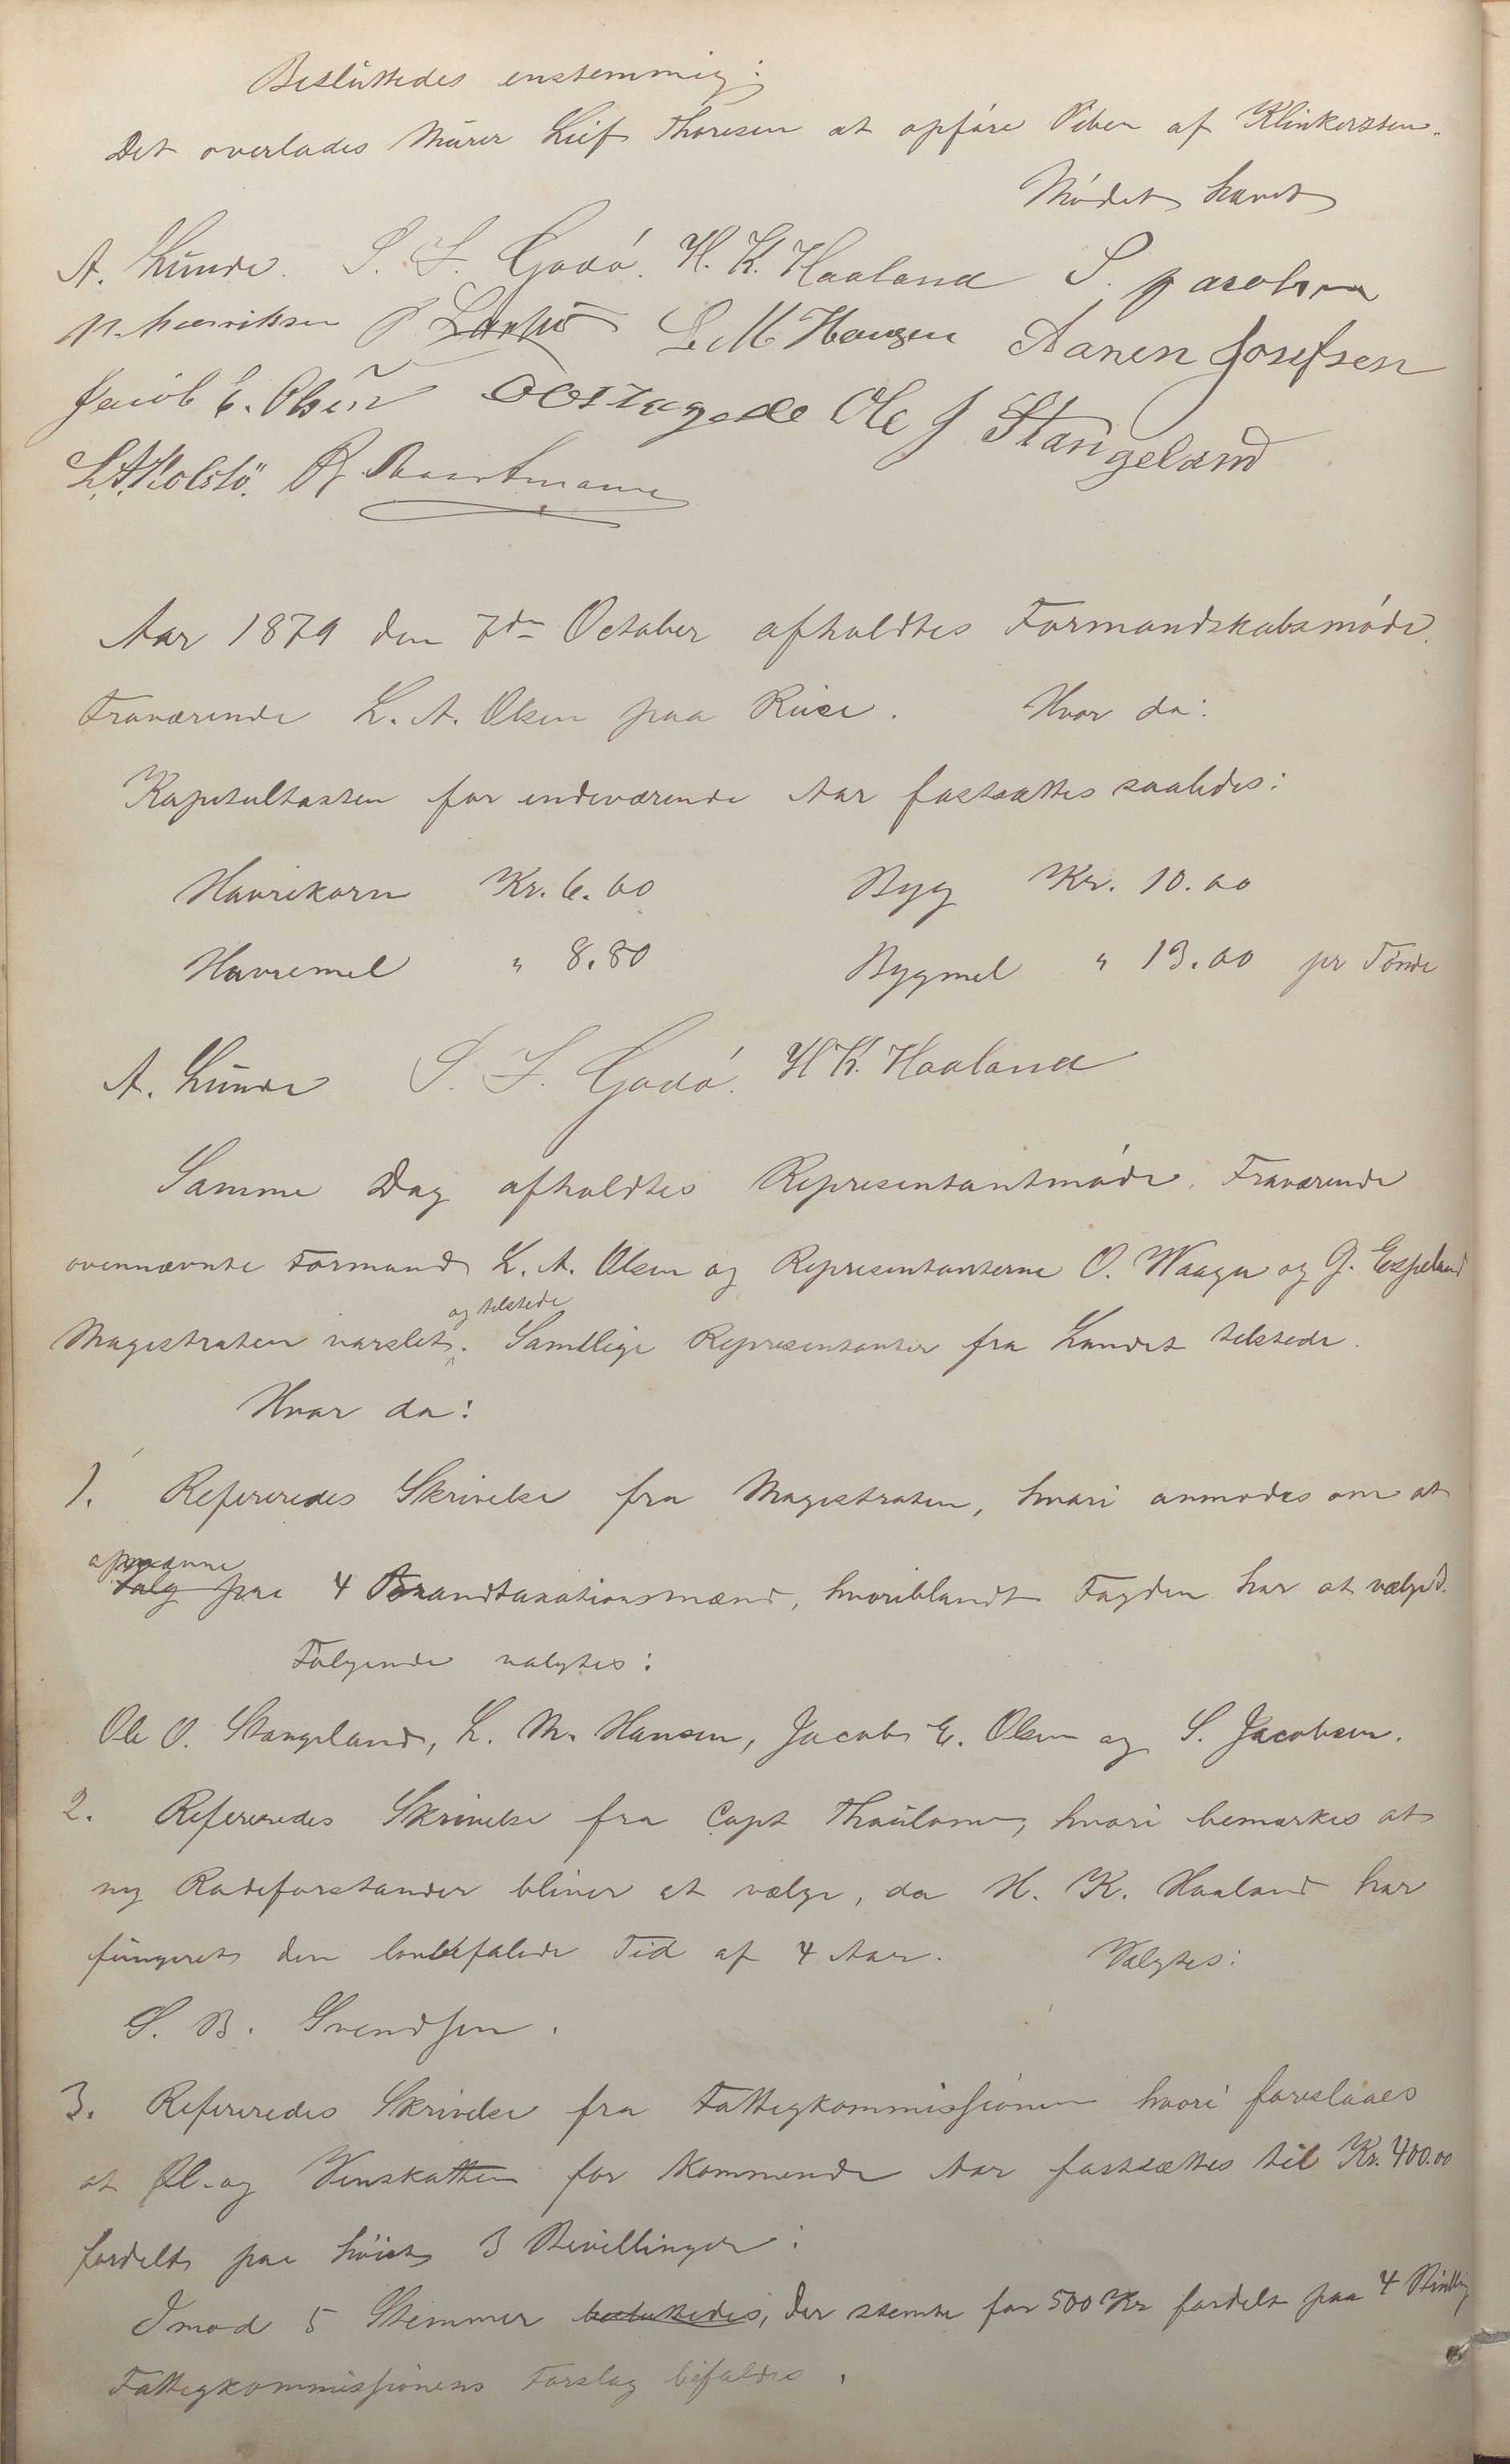 Besluttedes enstemmig:
Det overlades Murer Leif Thoresen at opføre Piben af Klinkersten.
Mødet hævet
A. Lunde. S. S. Godø. H. K. Haaland S. Jacobsen
N. Henriksen L. M. Hansen Aanen Josefsen
Jacob E. Olsen Ole J Stangeland
L. A. Kolstö.
Aar 1879 den 7de October afholdtes Formandskabsmøde.
Fraværende L. A. Olsen paa Reise. Hvor da:
Kapitelstaxten for indeværende Aar fastsattes saaledes:
Havrekorn Kr. 6.00 Byg Kr. 10.00
Havremel " 8.80 Bygmel " 13.00 pr Tønde
A. Lunde S. S. Godø. H K. Haaland
Samme Dag afholdtes Representantmøde. Fraværende
ovennævnte Formand L. A. Olsen og Representanterne O. Waage og G. Espeland
og tilstede
Magistraten varslet. Samtlige Representanter fra Landet tilstede.
Hvor da:
1. Refereredes Skrivelse fra Magistraten, hvori anmodes om at
opnævne
Valg paa 4 Brandtaxationsmænd, hvoriblandt Fogden har at vælge
Følgende valgtes:
Ole O. Stangeland, L. M. Hansen, Jacob E. Olsen og S. Jacobsen.
2. Refereredes Skrivelse fra Capt Thaulow, hvori bemærkes at
ny Rodeforstander bliver at vælge, da H. K. Haaland har
fungeret den lovbefalede Tid af 4 Aar. Valgtes:
S. B. Svendsen.
3. Refereredes Skrivelse fra Fattigkommissionen hvori foreslaaes
at Øl- og Vinskatten for kommende Aar fastsættes til Kr. 400.00
fordelt paa høist 3 Bevillinger:
Imod 5 Stemmer besluttedes, der stemte for 500 Kr fordelt paa 4 Bevillig
Fattigkommissionens Forslag bifaldes.